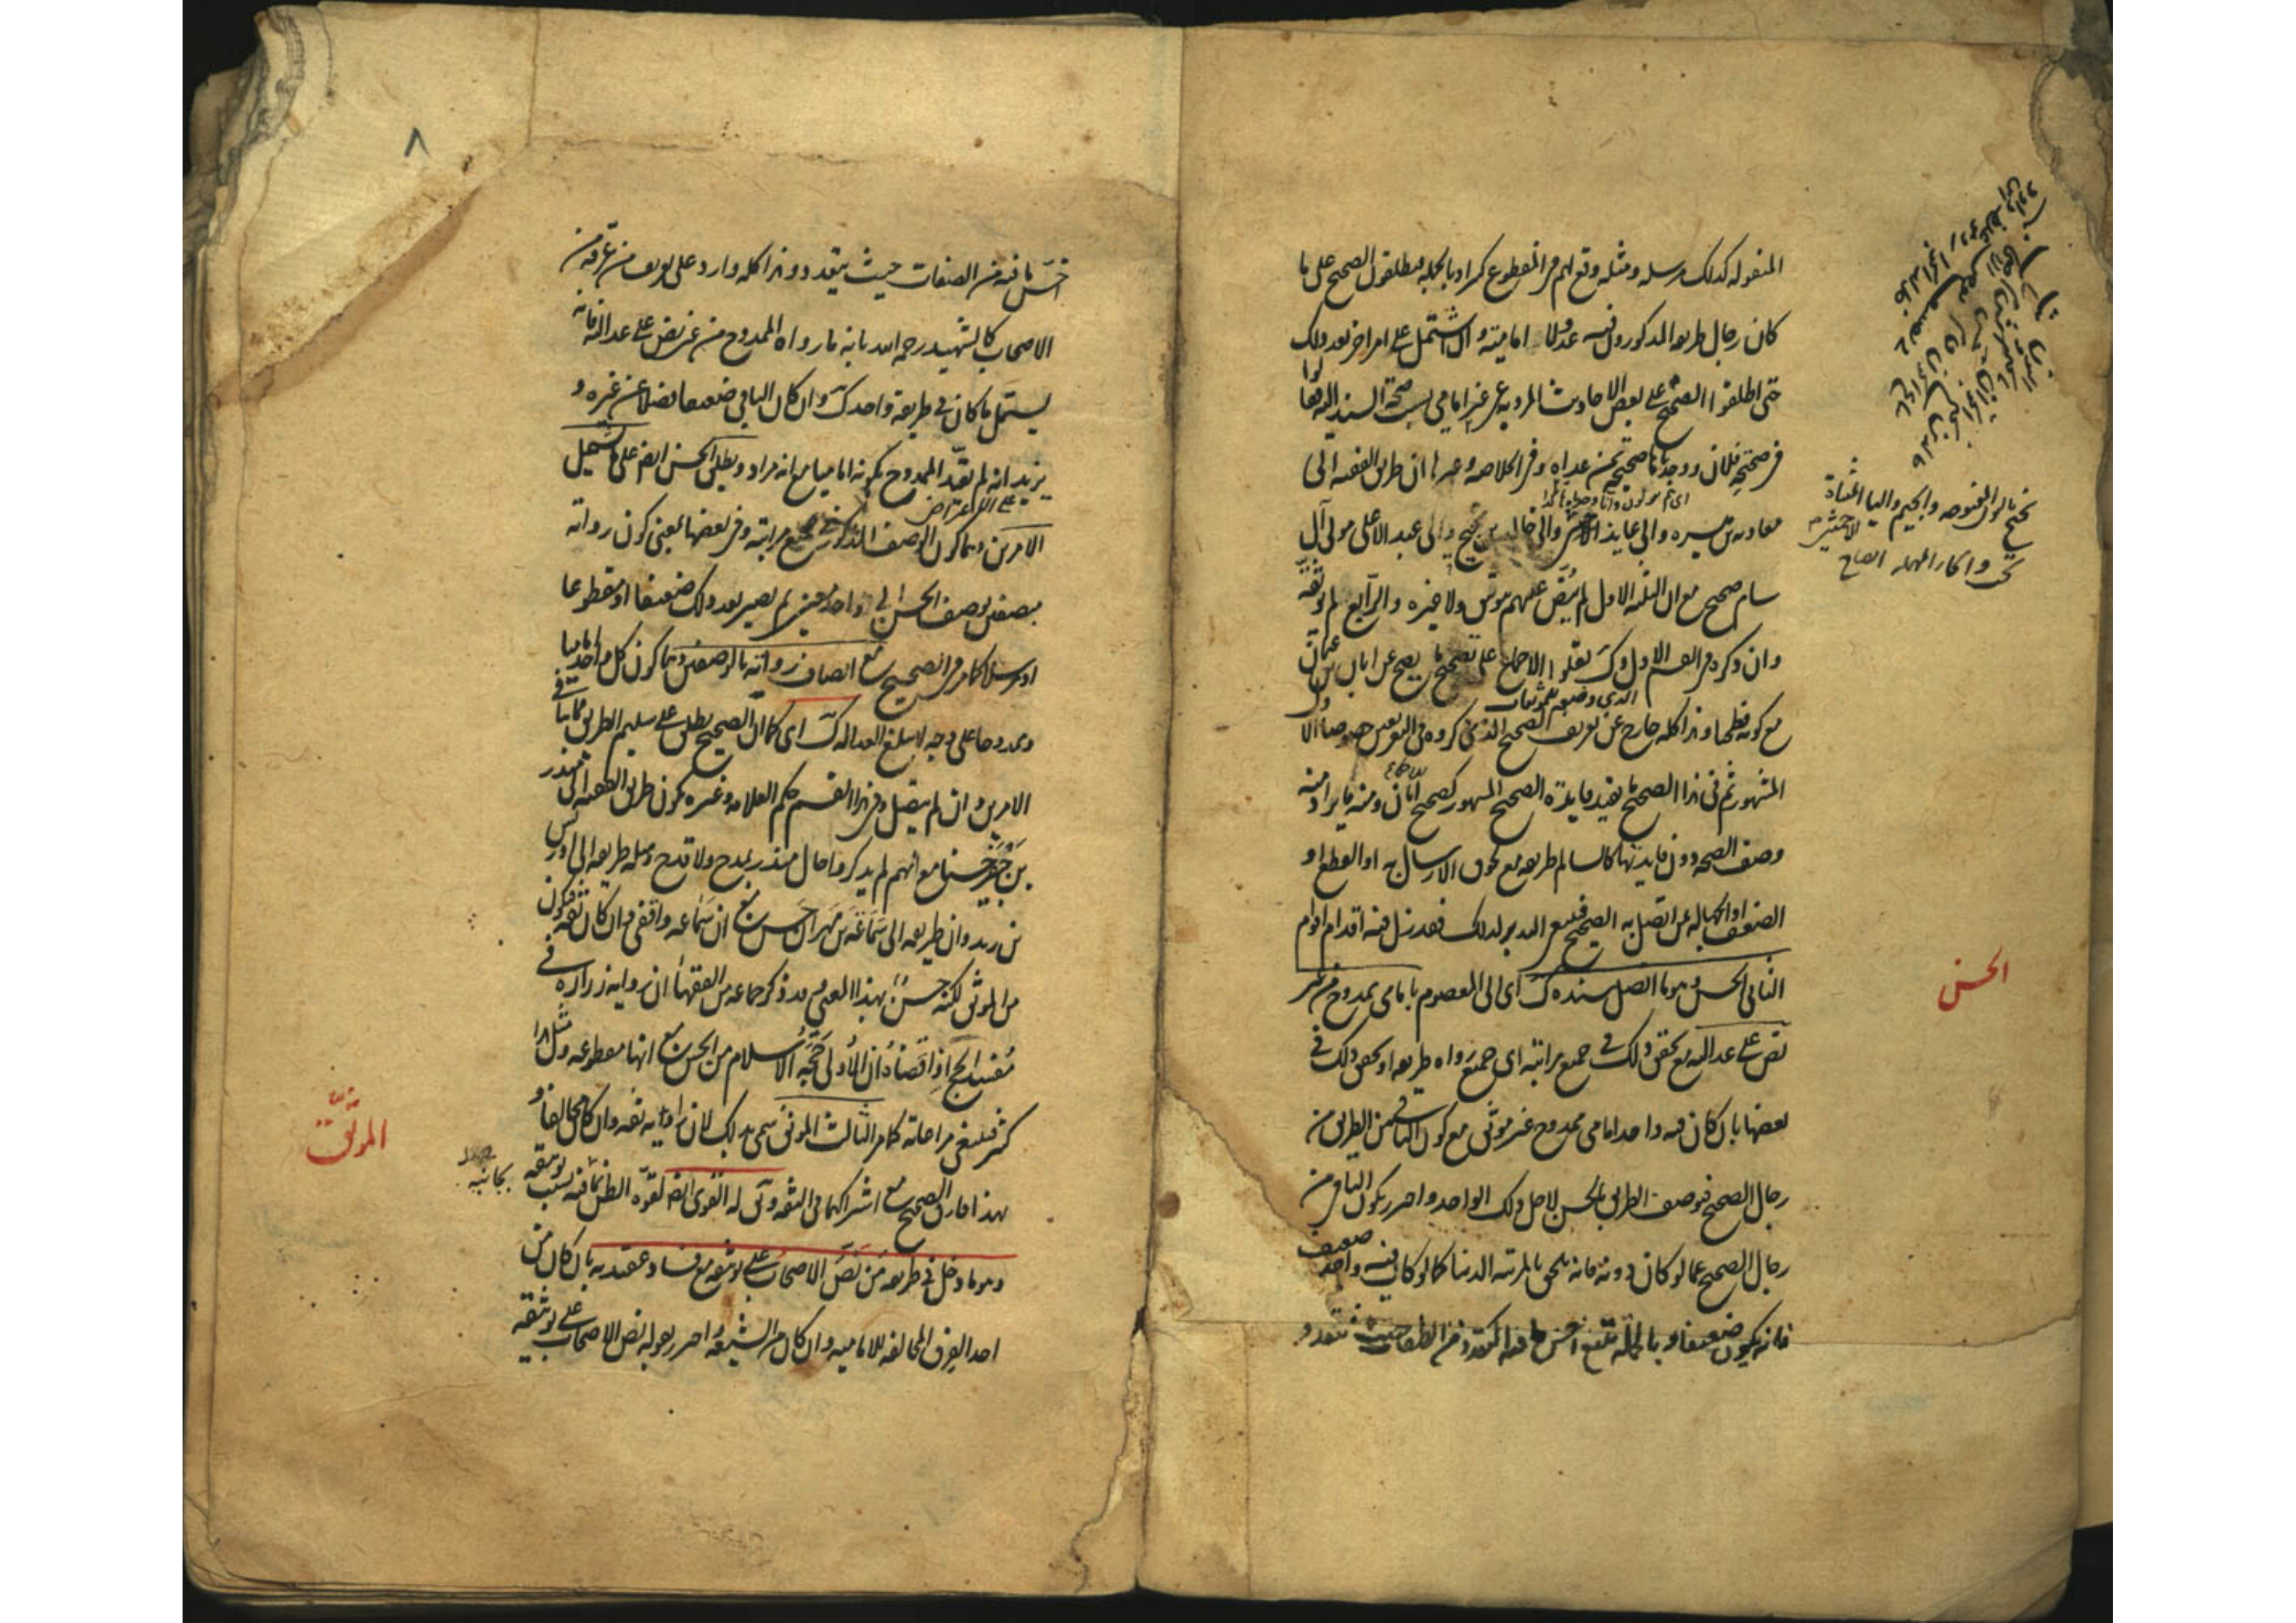 المنقوله كذلك مرسله ومثله وقع لهم في المقطوع كثيرا وبالجمله فيطلقون الصحيح على ما
كان رجال طريقه المذكورون فيه عدولا اماميته وان اشتمل على امر اخر بعد ذلك
حتى اطلقوا الصحيح على بعض الاحاديث المرويه عن غير امامي بسبب صحة السند اليه فقالوا
في صحيحة فلان ووجدناها صحيحة بمن عداه وفي الخلاصه وغيرها ان طريق الفقيه الى
معاويه بن ميسره والى عايذ الاحمسي والى خالد بن نجيح والى عبد الاعلى مولى آل
سام صحيح مع ان الثلثه الاول لم ينص عليهم بتوثيق ولا غيره والرابع لم يوثقه
وان ذكره في القسم الاول وكذلك نقلوا الاجماع على تصحيح ما يصح عن ابان بن عثمان
مع كونه فطحيا وهذا كله خارج عن تعريف الصحيح الذي ذكروه في التعريفين خصوصا الاول
الذي وضعه
المشهور ثم في هذا الصحيح ما يفيد فايدة الصحيح المشهور كصحيح ابان ومنه ما يراد منه
وصف الصحه دون فايدتها كالسالم طريقه مع لحوق الارسال به او القطع او
الضعف او الجهاله بمن اتصل به الصحيح فينبغي التدبر لذلك فقد زل فيه اقدام اقوام
الثاني الحسن وهو ما اتصل سنده كذلك اي الى المعصوم بامامي ممدوح من غير
نص على عدالته مع تحقق ذلك في جميع مراتبه اي جميع رواه طريقه او تحقق ذلك في
بعضها بان كان فيه واحد امامي ممدوح غير موثق مع كون الباقي من الطريق من
رجال الصحيح فيوصف الطريق بالحسن لاجل ذلك الواحد واحترز بكون الباقي من
رجال الصحيح عما لو كان دونه فانه يلحق بالمرتبه الدنيا كما لو كان فيه واحد ضعيف
فانه يكون ضعيفا وبالجمله فيتبع اخس ما فيه من الصفات حيث تتعدد و
نجيح بالنون المفتوحه والجيم والياء المثناة
تحت والحاء المهمله ايضاح
الحسن
٨
اخس ما فيه من الصفات حيث يتعدد وهذا كله وارد على تعريف من عرفه من
الاصحاب كالشهيد رحمه الله بانه ما رواه الممدوح من غير نص على عدالته فانه
يشتمل ما كان في طريقه واحد كذلك وان كان الباقي ضعيفا فضلا عن غيره و
يزيد انه لم يقيد الممدوح بكونه اماميا مع انه مراد ويطلق الحسن ايضا على ما يشمل
الامرين وهما كون الوصف المذكور في جميع مراتبه وفي بعضها بمعنى كون رواته
متصفين بوصف الحسن الى واحد معين ثم يصير بعد ذلك ضعيفا او مقطوعا
او مرسلا كما مر في الصحيح مع اتصاف رواته بالوصفين وهما كون كل واحد اماميا
وممدوحا على وجه لا يبلغ العداله كذلك اي كما ان الصحيح يطلق على سليم الطريق مما ينافي
الامرين وان لم يتصل وفي هذا القسم حكم العلامه وغيره بكون طريق الفقيه الى منذر
بن جفير حسنا مع انهم لم يذكروا حال منذر بمدح ولا قدح ومثله طريقه الى ادريس
بن زيد وان طريقه الى سماعه بن مهران حسن مع ان سماعه واقفي وان كان ثقه فيكون
من الموثق لكنه حسن بهذا المعنى وقد ذكر جماعه من الفقهاء ان روايه زراره في
مفسد الحج اذا قضاه ان الاولى حجة الاسلام من الحسن مع انها مقطوعه ومثل هذا
كثير فينبغي مراعاته كما مر الثالث الموثق سمي بذلك لان راويه ثقه وان كان مخالفا و
بهذا فارق الصحيح مع اشتراكهما في الثقه ويقال له القوي ايضا لقوه الظن بجانبه بسبب توثيقه
وهو ما دخل في طريقه من نص الاصحاب على توثيقه مع فساد عقيدته بان كان من
احد الفرق المخالفه للاماميه وان كان من الشيعه واحترز بقوله نص الاصحاب على توثيقه
بجانبه
الموثق